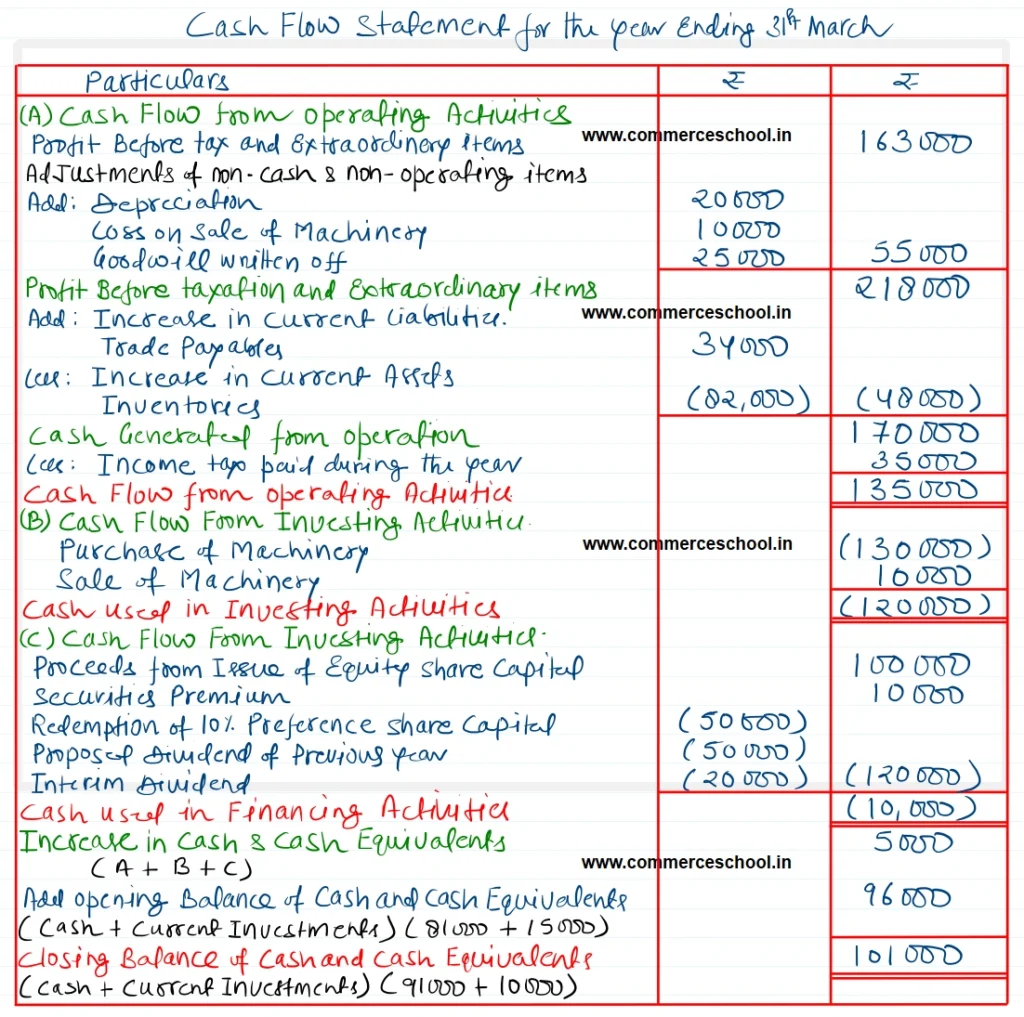 Cash Flow Statement for the year Ending 31st March
Particulars ₹ ₹
(A) Cash Flow from Operating Activities
www.commerceschool.in
Profit Before tax and Extraordinary Items 163000
Adjustments of non-cash & non-operating items
Add: Depreciation 20000
Loss on Sale of Machinery 10000
Goodwill written off 25000 55000
Profit Before taxation and Extraordinary items 218000
Add: Increase in Current Liabilities. www.commerceschool.in
Trade Payables 34000
Less: Increase in Current Assets
Inventories (82,000) (48000)
Cash Generated from operation 170000
Less: Income tax paid during the year 35000
Cash Flow from Operating Activities 135000
(B) Cash Flow From Investing Activities.
Purchase of Machinery www.commerceschool.in (130000)
Sale of Machinery 10000
Cash used in Investing Activities (120000)
(C) Cash Flow From Investing Activities.
Proceeds from Issue of Equity Share Capital 100000
Securities Premium 10000
Redemption of 10% Preference Share Capital (50000)
Proposed Dividend of Previous year (50000)
Interim Dividend (20000) (120000)
Cash used in Financing Activities (10,000)
Increase in Cash & Cash Equivalents 5000
(A + B + C) www.commerceschool.in
Add opening Balance of Cash and Cash Equivalents 96000
(Cash + Current Investments) (81000 + 15000)
Closing Balance of Cash and Cash Equivalents 101000
(Cash + Current Investments) (91000 + 10000)